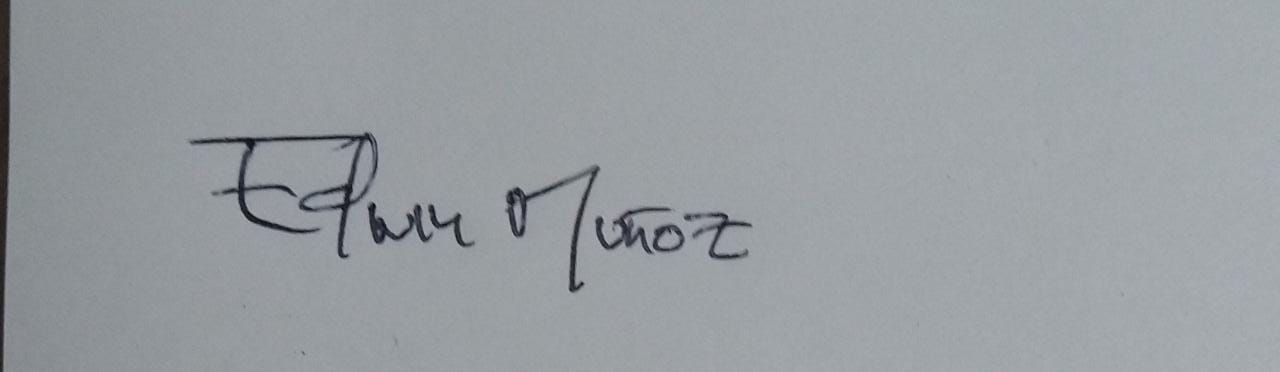 Edwin Muñoz